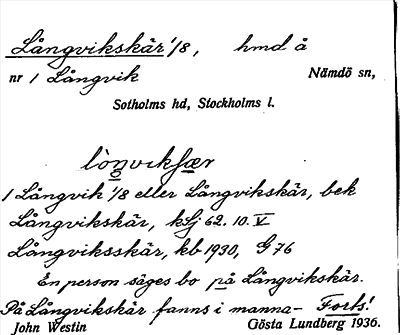 Långvikskär 1/8, hmd å
nr 1 Långvik Nämdö sn,
Sotholms hd, Stockholms l.
lòŋvikʃær
1 Långvik 1/8 eller Långvikskär, bek
Långvikskär, kSj 62. 10. V
Långviksskär, kb 1930, G 76
En person säges bo på Långvikskär.
På Långvikskär fanns i manna- Forts!
John Westin Gösta Lundberg 1936.